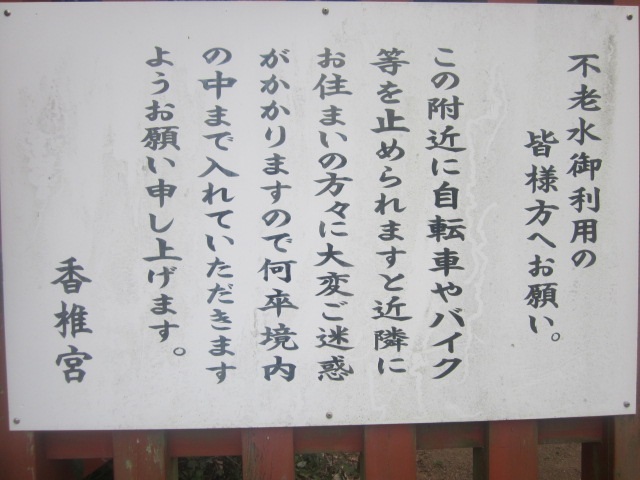 不老水御利用の
皆様方へお願い。
この附近に自転車やバイク
等を止められますと近隣に
お住まいの方々に大変ご迷惑
がかかりますので何卒境内
の中まで入れていただきます
ようお願い申し上げます。
香椎宮